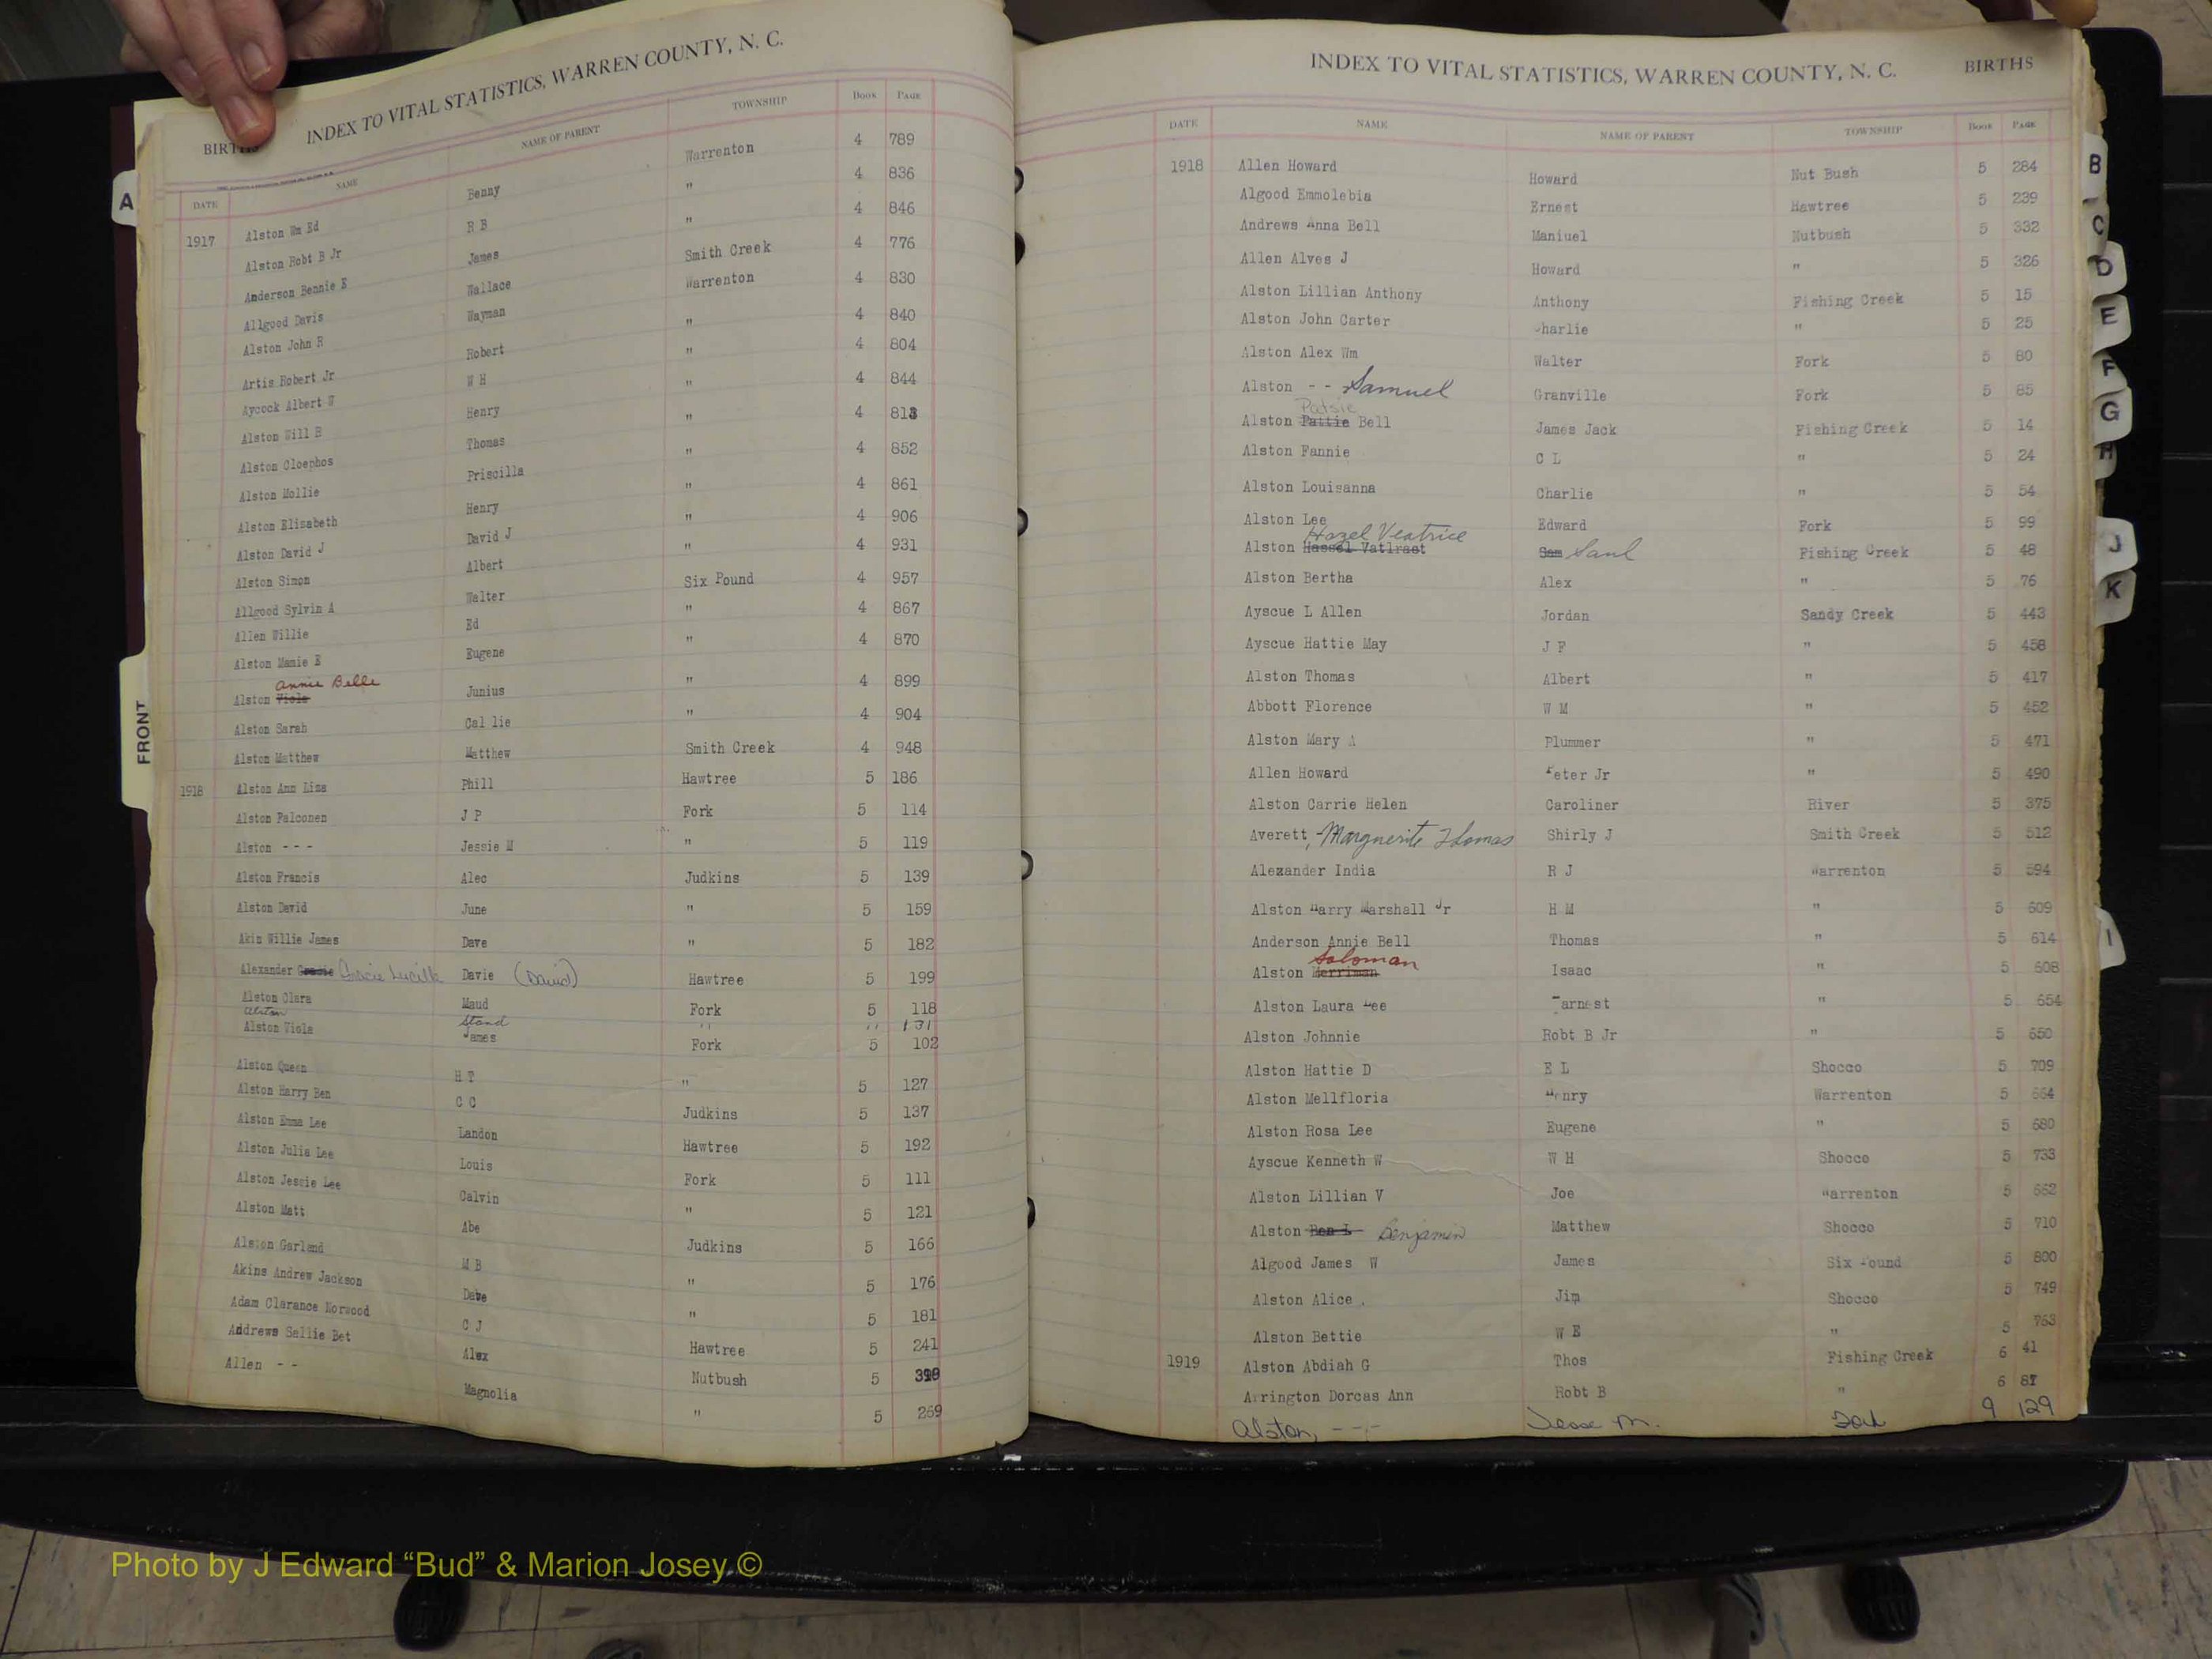 INDEX TO VITAL STATISTICS, WARREN COUNTY, N. C.
BIRTHS
DATE NAME NAME OF PARENT TOWNSHIP BOOK PAGE
1917 Alston Wm Ed Benny Warrenton 4 789
Alston Robt B Jr R B " 4 836
Anderson Bennie E James " 4 846
Allgood Davis Wallace Smith Creek 4 776
Alston John R Wayman Warrenton 4 830
Artis Robert Jr Robert " 4 840
Aycock Albert W W H " 4 804
Alston Will H Henry " 4 844
Alston Cloephos Thomas " 4 813
Alston Mollie Priscilla " 4 852
Alston Elisabeth Henry " 4 861
Alston David J David J " 4 906
Alston Simon Albert " 4 931
Allgood Sylvin A Walter Six Pound 4 957
Allen Willie Ed " 4 867
Alston Mamie E Eugene " 4 870
Annie Belle
Alston Viola Junius " 4 899
Alston Sarah Cal lie " 4 904
Alston Matthew Matthew Smith Creek 4 948
1918 Alston Ann Liza Phill Hawtree 5 186
Alston Falconen J P Fork 5 114
Alston - - - Jessie M " 5 119
Alston Francis Alec Judkins 5 139
Alston David June " 5 159
Akin Willie James Dave " 5 182
Alexander Gracie Lucille Davie (David) Hawtree 5 199
Alston Clara Maud Fork 5 118
Alston Stand " " 131
Alston Viola James Fork 5 102
Alston Queen H T " 5 127
Alston Harry Ben C C Judkins 5 137
Alston Emma Lee Landon Hawtree 5 192
Alston Julia Lee Louis Fork 5 111
Alston Jessie Lee Calvin " 5 121
Alston Matt Abe Judkins 5 166
Alston Garland M B " 5 176
Akins Andrew Jackson Dave " 5 181
Adam Clarance Norwood C J Hawtree 5 241
Andrews Sallie Bet Alex Nutbush 5
Allen - - Magnolia " 5 269
A
FRONT
INDEX TO VITAL STATISTICS, WARREN COUNTY, N. C. BIRTHS
DATE NAME NAME OF PARENT TOWNSHIP BOOK PAGE
1918 Allen Howard Howard Nut Bush 5 284
Algood Emmolebia Ernest Hawtree 5 239
Andrews Anna Bell Maniuel Nutbush 5 332
Allen Alves J Howard " 5 326
Alston Lillian Anthony Anthony Fishing Creek 5 15
Alston John Carter Charlie " 5 25
Alston Alex Wm Walter Fork 5 80
Alston - - Samuel Granville Fork 5 85
Patsie
Alston Pattie Bell James Jack Fishing Creek 5 14
Alston Fannie C L " 5 24
Alston Louisanna Charlie " 5 54
Alston Lee Edward Fork 5 99
Hazel Veatrice
Alston Hassel Vatlraet Sam Saul Fishing Creek 5 48
Alston Bertha Alex " 5 76
Ayscue L Allen Jordan Sandy Creek 5 443
Ayscue Hattie May J F " 5 458
Alston Thomas Albert " 5 417
Abbott Florence W M " 5 452
Alston Mary A Plummer " 5 471
Allen Howard Peter Jr " 5 490
Alston Carrie Helen Caroliner River 5 375
Averett, - Marguerite Thomas Shirly J Smith Creek 5 512
Alexander India R J Warrenton 5 594
Alston Harry Marshall Jr H M " 5 609
Anderson Annie Bell Thomas " 5 614
Soloman
Alston Merriman Isaac " 5 608
Alston Laura Lee Earnest " 5 654
Alston Johnnie Robt B Jr " 5 650
Alston Hattie D E L Shocco 5 709
Alston Mellfloria Henry Warrenton 5 664
Alston Rosa Lee Eugene " 5 680
Ayscue Kenneth W W H Shocco 5 733
Alston Lillian V Joe Warrenton 5 662
Alston Ben L Benjamin Matthew Shocco 5 710
Algood James W James Six Pound 5 800
Alston Alice Jim Shocco 5 749
Alston Bettie W E " 5 763
1919 Alston Abdiah G Thos Fishing Creek 6 41
Arrington Dorcas Ann Robt B " 6 81
Alston, - - - Jesse M. 9 129
B
C
D
E
F
G
H
J
K
I
Photo by J Edward “Bud” & Marion Josey ©